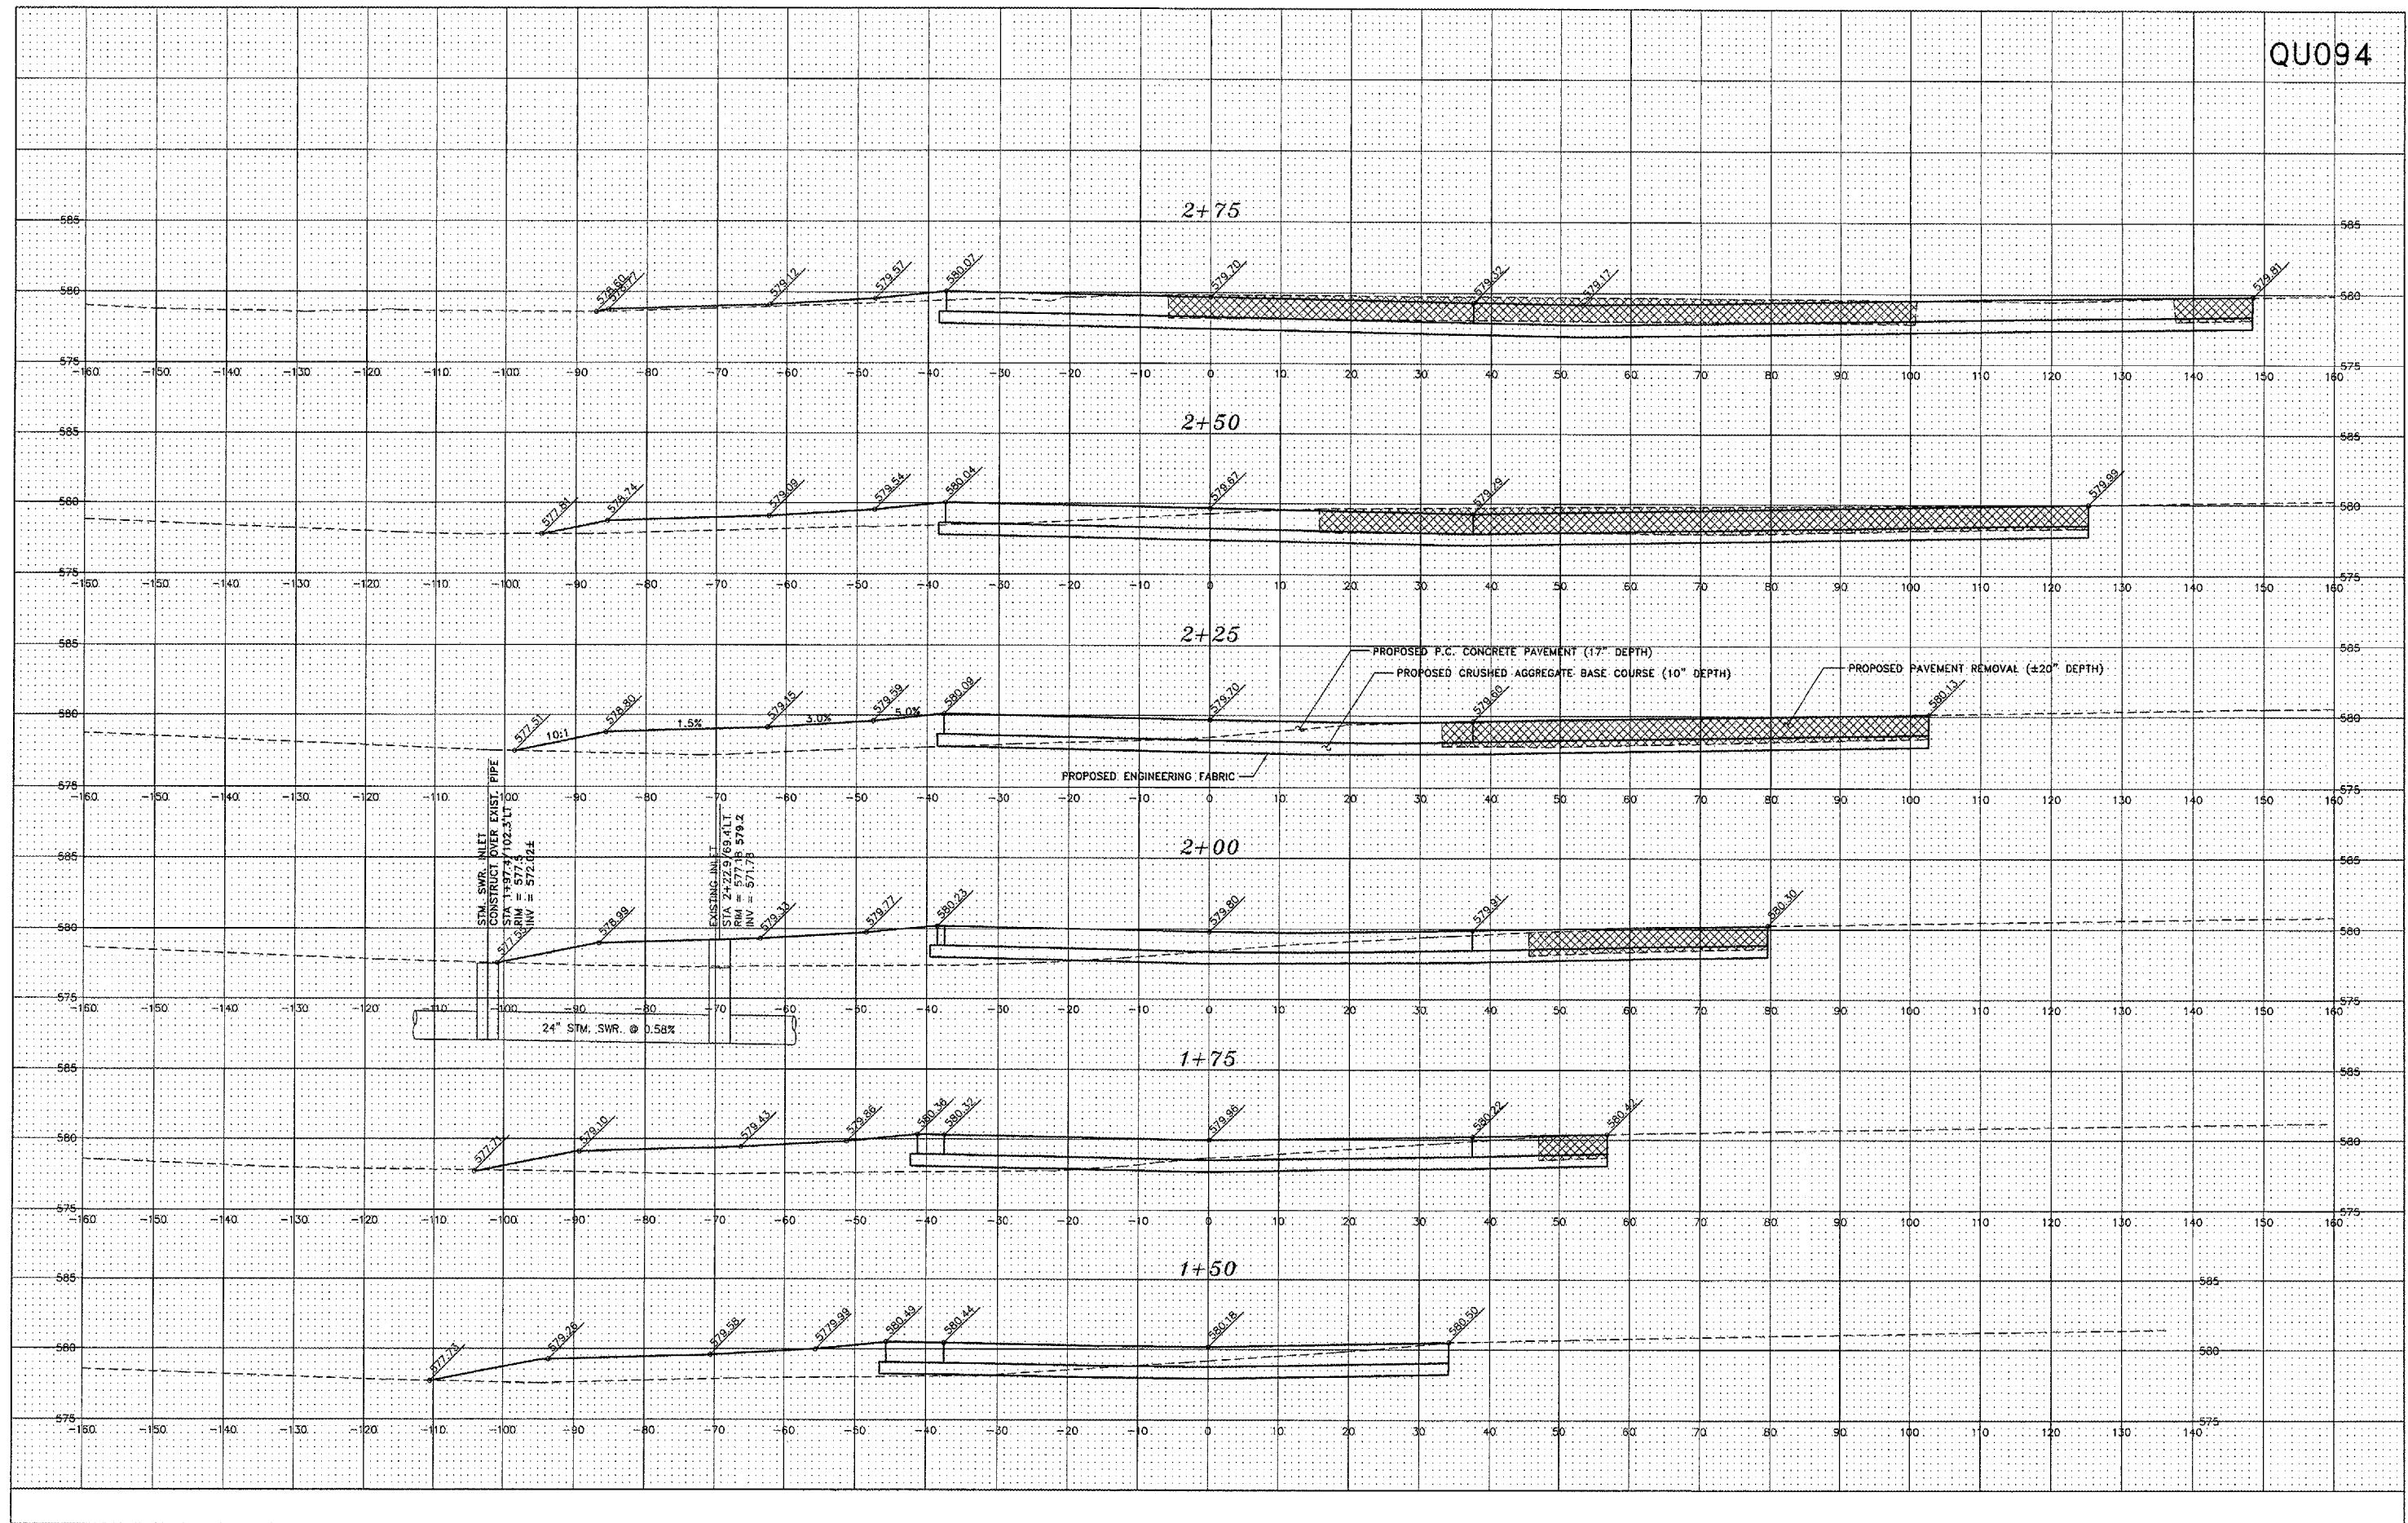 QU094
2+75
585 585
578.60 578.77 579.12 579.57 580.07 579.70 579.32 579.17 579.81
580 580
575 575
-160 -150 -140 -130 -120 -110 -100 -90 -80 -70 -60 -50 -40 -30 -20 -10 0 10 20 30 40 50 60 70 80 90 100 110 120 130 140 150 160
2+50
585 585
577.81 578.74 579.09 579.54 580.04 579.67 579.29 579.99
580 580
575 575
-160 -150 -140 -130 -120 -110 -100 -90 -80 -70 -60 -50 -40 -30 -20 -10 0 10 20 30 40 50 60 70 80 90 100 110 120 130 140 150 160
2+25
585 585
PROPOSED P.C. CONCRETE PAVEMENT (17" DEPTH)
PROPOSED CRUSHED AGGREGATE BASE COURSE (10" DEPTH)
PROPOSED PAVEMENT REMOVAL (±20" DEPTH)
577.51 578.80 579.15 579.59 580.09 579.70 579.60 580.13
580 580
10:1 1.5% 3.0% 5.0%
PROPOSED ENGINEERING FABRIC
575 575
-160 -150 -140 -130 -120 -110 -100 -90 -80 -70 -60 -50 -40 -30 -20 -10 0 10 20 30 40 50 60 70 80 90 100 110 120 130 140 150 160
STM. SWR. INLET
CONSTRUCT OVER EXIST. PIPE
STA 1+97.4/102.3'LT
RIM = 577.5
INV = 572.02±
EXISTING INLET
STA 2+22.9/69.4'LT
RIM = 577.18 579.2
INV = 571.73
2+00
585 585
577.55 578.99 579.33 579.77 580.23 579.80 579.91 580.30
580 580
575 575
-160 -150 -140 -130 -120 -110 -100 -90 -80 -70 -60 -50 -40 -30 -20 -10 0 10 20 30 40 50 60 70 80 90 100 110 120 130 140 150 160
24" STM. SWR. @ 0.58%
1+75
585 585
577.71 579.10 579.43 579.86 580.36 580.32 579.96 580.22 580.42
580 580
575 575
-160 -150 -140 -130 -120 -110 -100 -90 -80 -70 -60 -50 -40 -30 -20 -10 0 10 20 30 40 50 60 70 80 90 100 110 120 130 140 150 160
1+50
585 585
577.73 579.26 579.58 5779.99 580.49 580.44 580.18 580.50
580 580
575 575
-160 -150 -140 -130 -120 -110 -100 -90 -80 -70 -60 -50 -40 -30 -20 -10 0 10 20 30 40 50 60 70 80 90 100 110 120 130 140